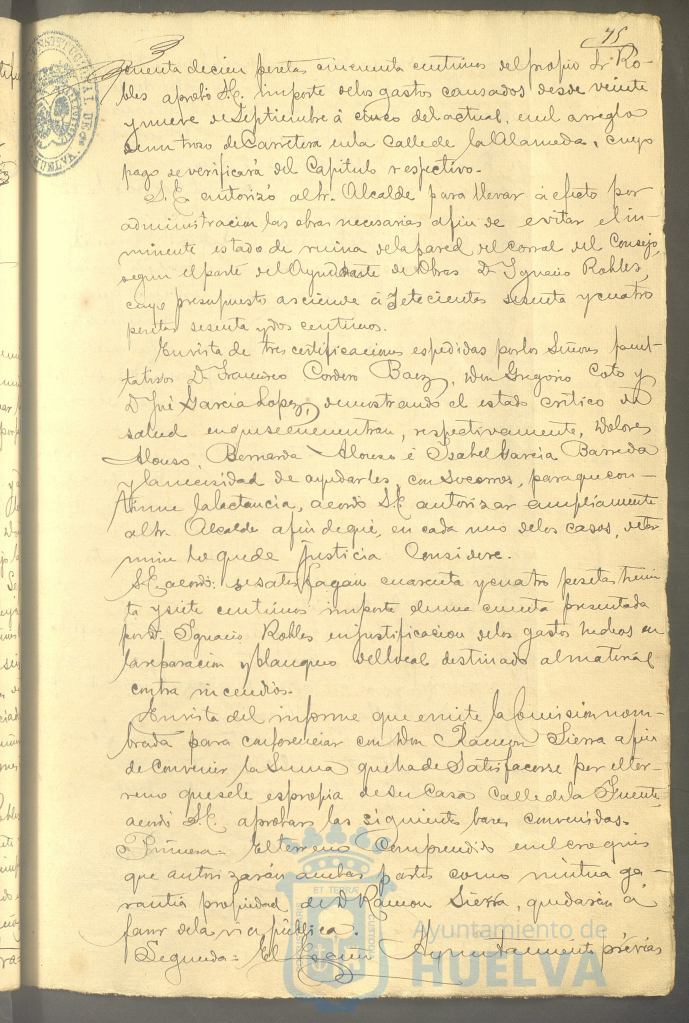 75
cuenta de cien pesetas cincuenta centimos del propio Sr. Ro-
bles aprobó S.E. importe delos gastos causados desde veinte
y nueve de Septiembre á cinco del actual, en el arreglo
de un trozo de Carretera en la calle de la Alameda, cuyo
pago se verificará del Capitulo respectivo.
S.E. autorizó al Sr. Alcalde para llevar á efecto por
administracion las obras necesarias a fin de evitar el in-
minente estado de ruina dela pared del corral del Consejo,
segun el parte del Ayudante de Obras D. Ygnacio Robles,
cuyo presupuesto asciende á Setecientas sesenta y cuatro
pesetas sesenta y dos centimos.
En vista de tres certificaciones espedidas por los Señores facul-
tativos D. Francisco Cordero Baez, Don Gregorio Coto y
D. José Garcia Lopez, demostrando el estado critico de
salud en que se encuentran, respectivamente, Dolores
Alonso, Bernarda Alonso é Ysabel Garcia Barreda
y la necesidad de ayudarles, con socorros, para que con-
tinue la lactancia, acordó S.E. autorizar ampliamente
al Sr. Alcalde a fin de que, en cada uno delos casos, deter-
mine lo que de justicia considere.
S.E. acordó: se satisfagan cuarenta y cuatro pesetas trein-
ta y siete centimos importe de una cuenta presentada
por D. Ygnacio Robles en justificacion delos gastos hechos en
la reparacion y blanqueo del local destinado al material
contra incendios.
En vista del informe que emite la Comision nom-
brada para conferenciar con Don Ramon Sierra a fin
de convenir la Suma que ha de Satisfacerse por el ter-
reno que se le espropia de su Casa Calle de la Fuente,
acordó S.E. aprobar las siguientes bases convenidas.
Primera= El terreno comprendido en el croquis
que autorizarán ambas partes como mutua ga-
rantia propiedad de D. Ramon Sierra, quedará á
favor dela via pública.
Segunda= El Ayuntamiento prévias
Ayuntamiento de
HUELVA